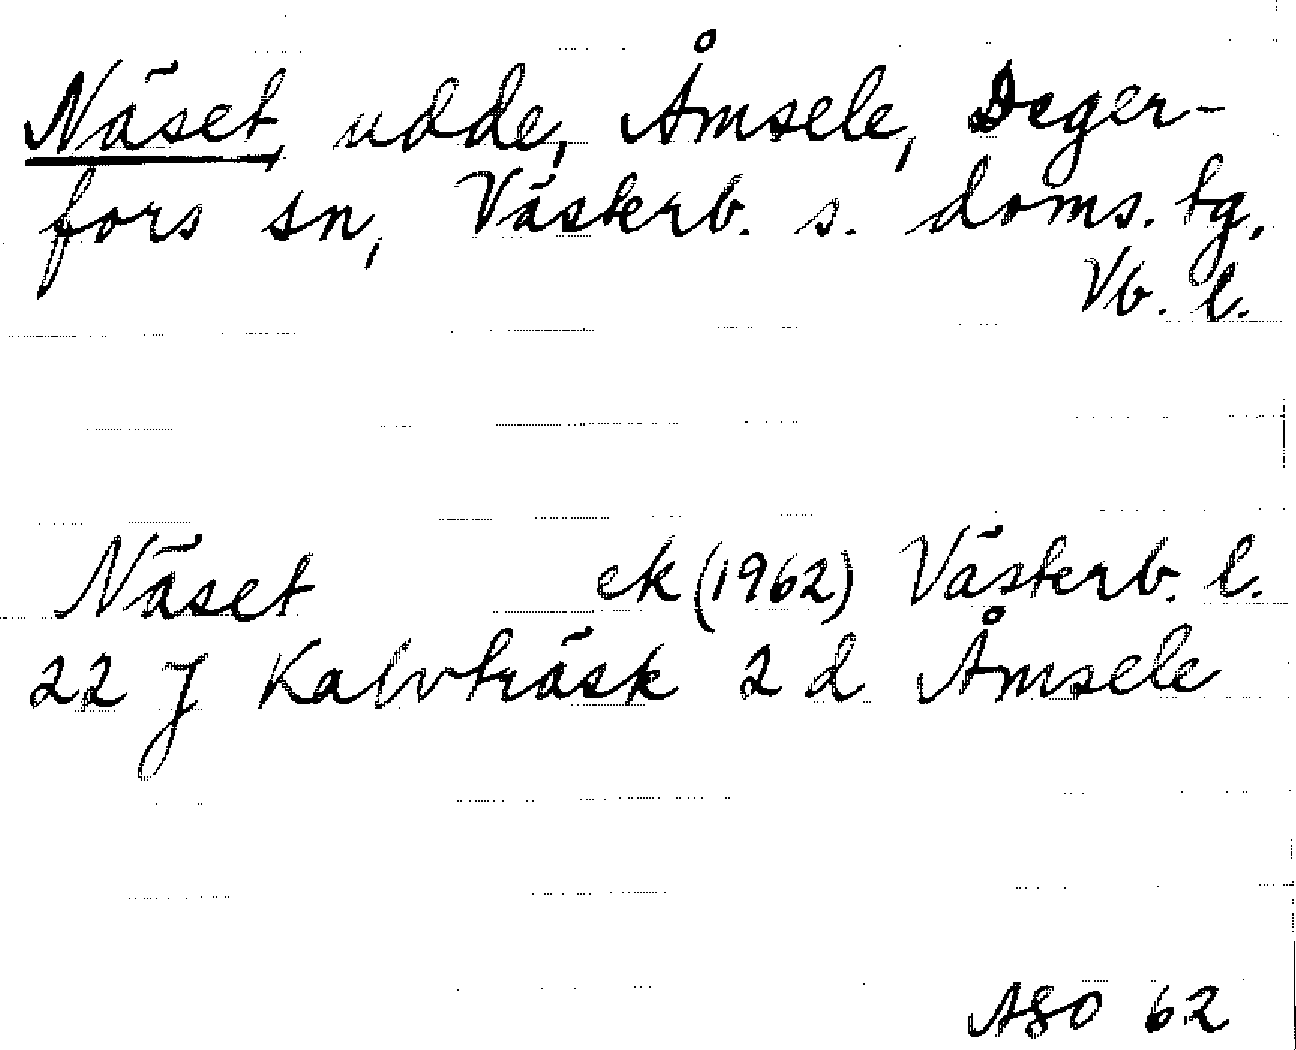 Näset, udde, Åmsele, Deger-
fors sn, Västerb. s. doms. tg,
Vb. l.
Näset ek (1962) Västerb. l.
22 J Kalvträsk 2 d Åmsele
ASO 62